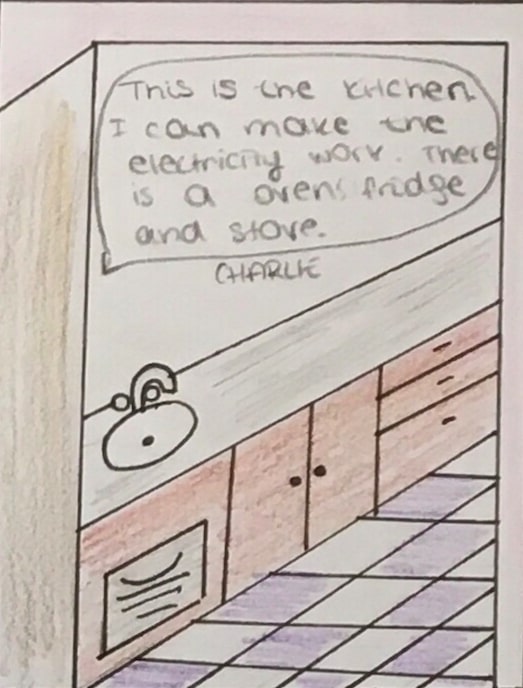 This is the kitchen.
I can make the
electricity work. There
is a oven, fridge
and stove.
CHARLIE